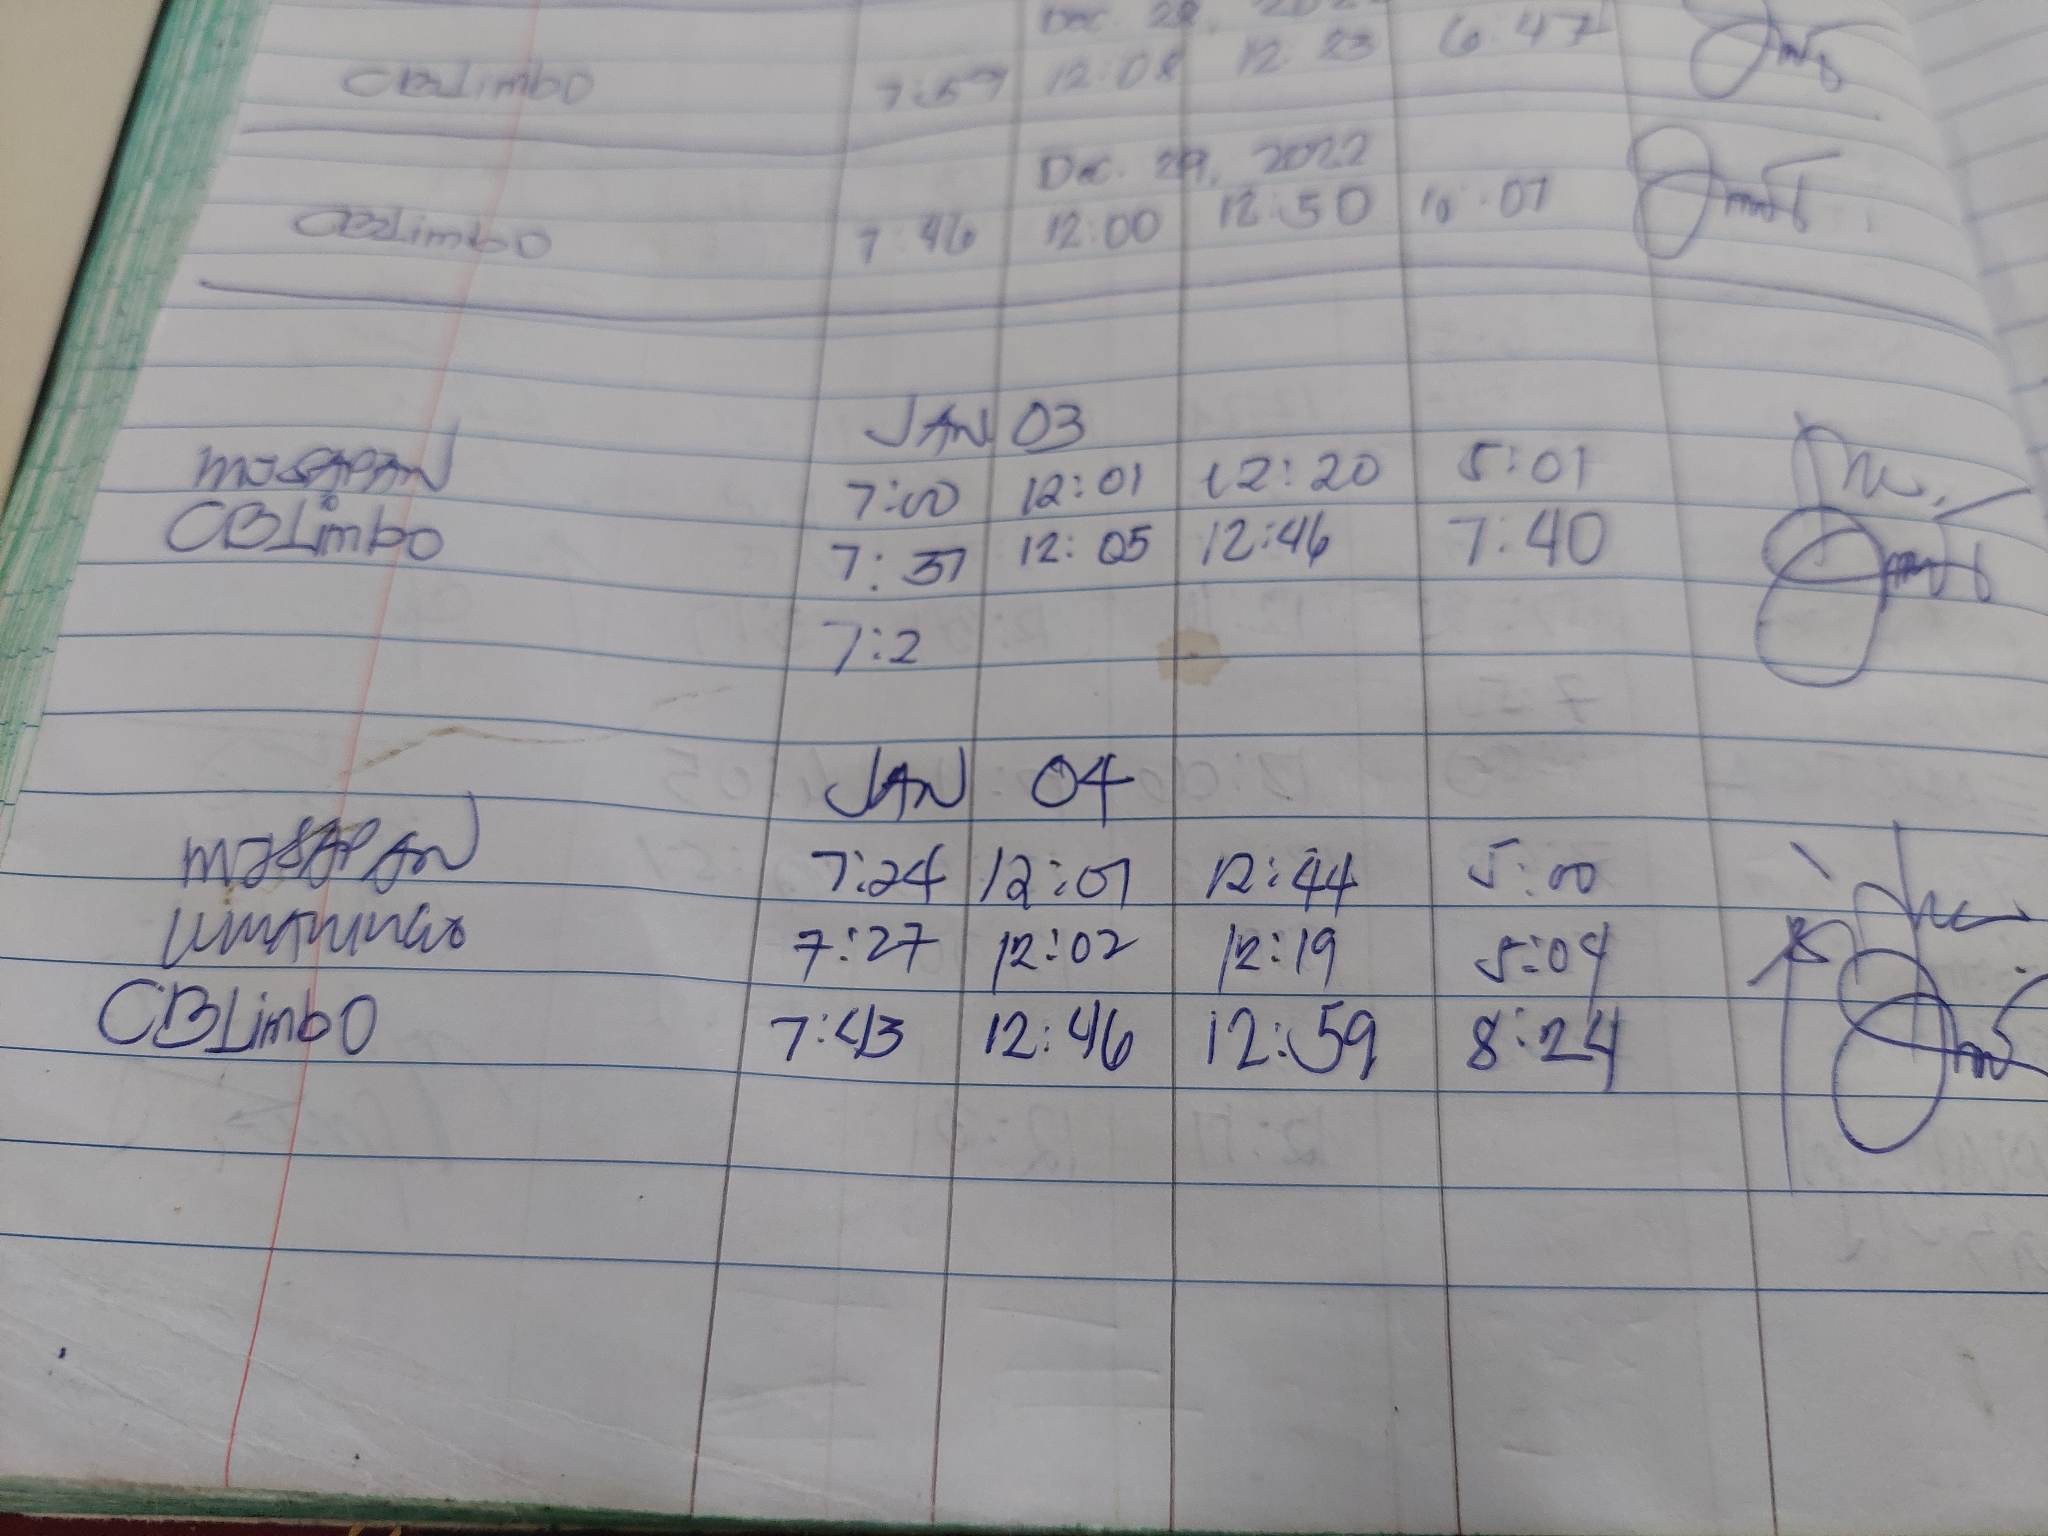 Dec. 28, 202
CBLimbo 7:57 12:08 12:23 6:47
Dec. 29, 2022
CBLimbo 7:46 12:00 12:50 10:07
JAN 03
MJSAPAN 7:00 12:01 12:20 5:01
CBLimbo 7:37 12:05 12:46 7:40
7:2
JAN 04
MJSAPAN 7:24 12:01 12:44 5:00
7:27 12:02 12:19 5:04
CBLimbo 7:43 12:46 12:59 8:24